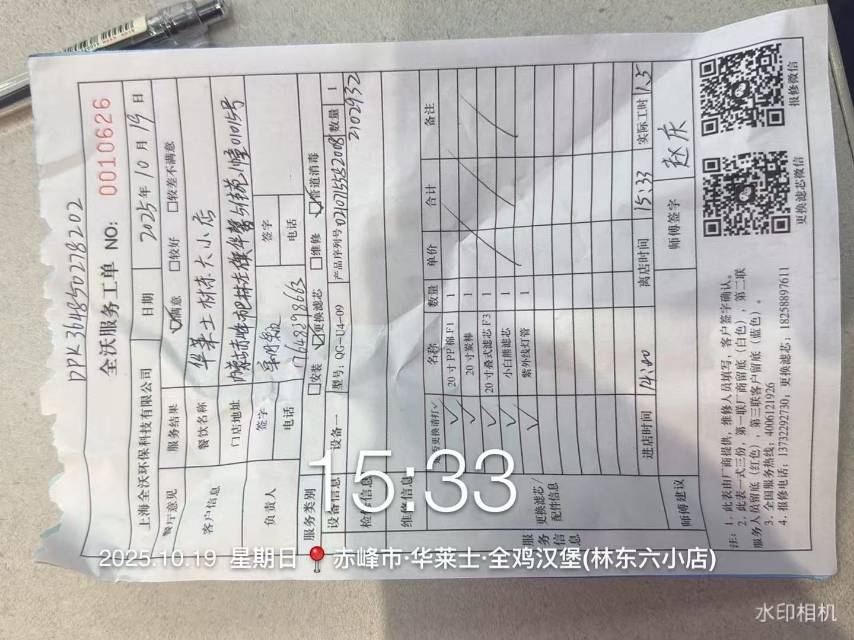 DPK364850278202
全沃服务工单 NO: 0010626
上海全沃环保科技有限公司 日期 2025年10月19日
餐厅意见 服务结果 ☑满意 □较好 □较差不满意
客户信息 餐饮名称 华莱士林东六小店
门店地址
负责人 签字 签字
电话 17648298663 电话
服务类别 □安装 ☑更换滤芯 □维修 ☑管道消毒
设备信息 设备一 型号: QG-U4-09 产品序列号 数量 1
2102932
检修信息
维修信息
服务信息
更换滤芯/配件信息
是否更换请打✓ 名称 数量 单价 合计 备注
✓ 20寸PP棉F1 1
✓ 20寸炭棒 1
✓ 20寸叠式滤芯F3 1
✓ 小白熊滤芯 1
✓ 紫外线灯管 1
进店时间 14:00 离店时间 15:33 实际工时 1.5
师傅建议 师傅签字 赵庆
注: 1. 此表由厂商提供, 维修人员填写, 客户签字确认。
2. 此表一式三份, 第一联厂商留底(白色), 第二联
服务人员留底(红色), 第三联客户留底(蓝色)。
3. 全国服务热线: 4006121926
4. 报修电话: 13732292730; 更换滤芯: 18258897611
更换滤芯微信
报修微信
15:33
2025.10.19 星期日 赤峰市·华莱士·全鸡汉堡(林东六小店)
水印相机